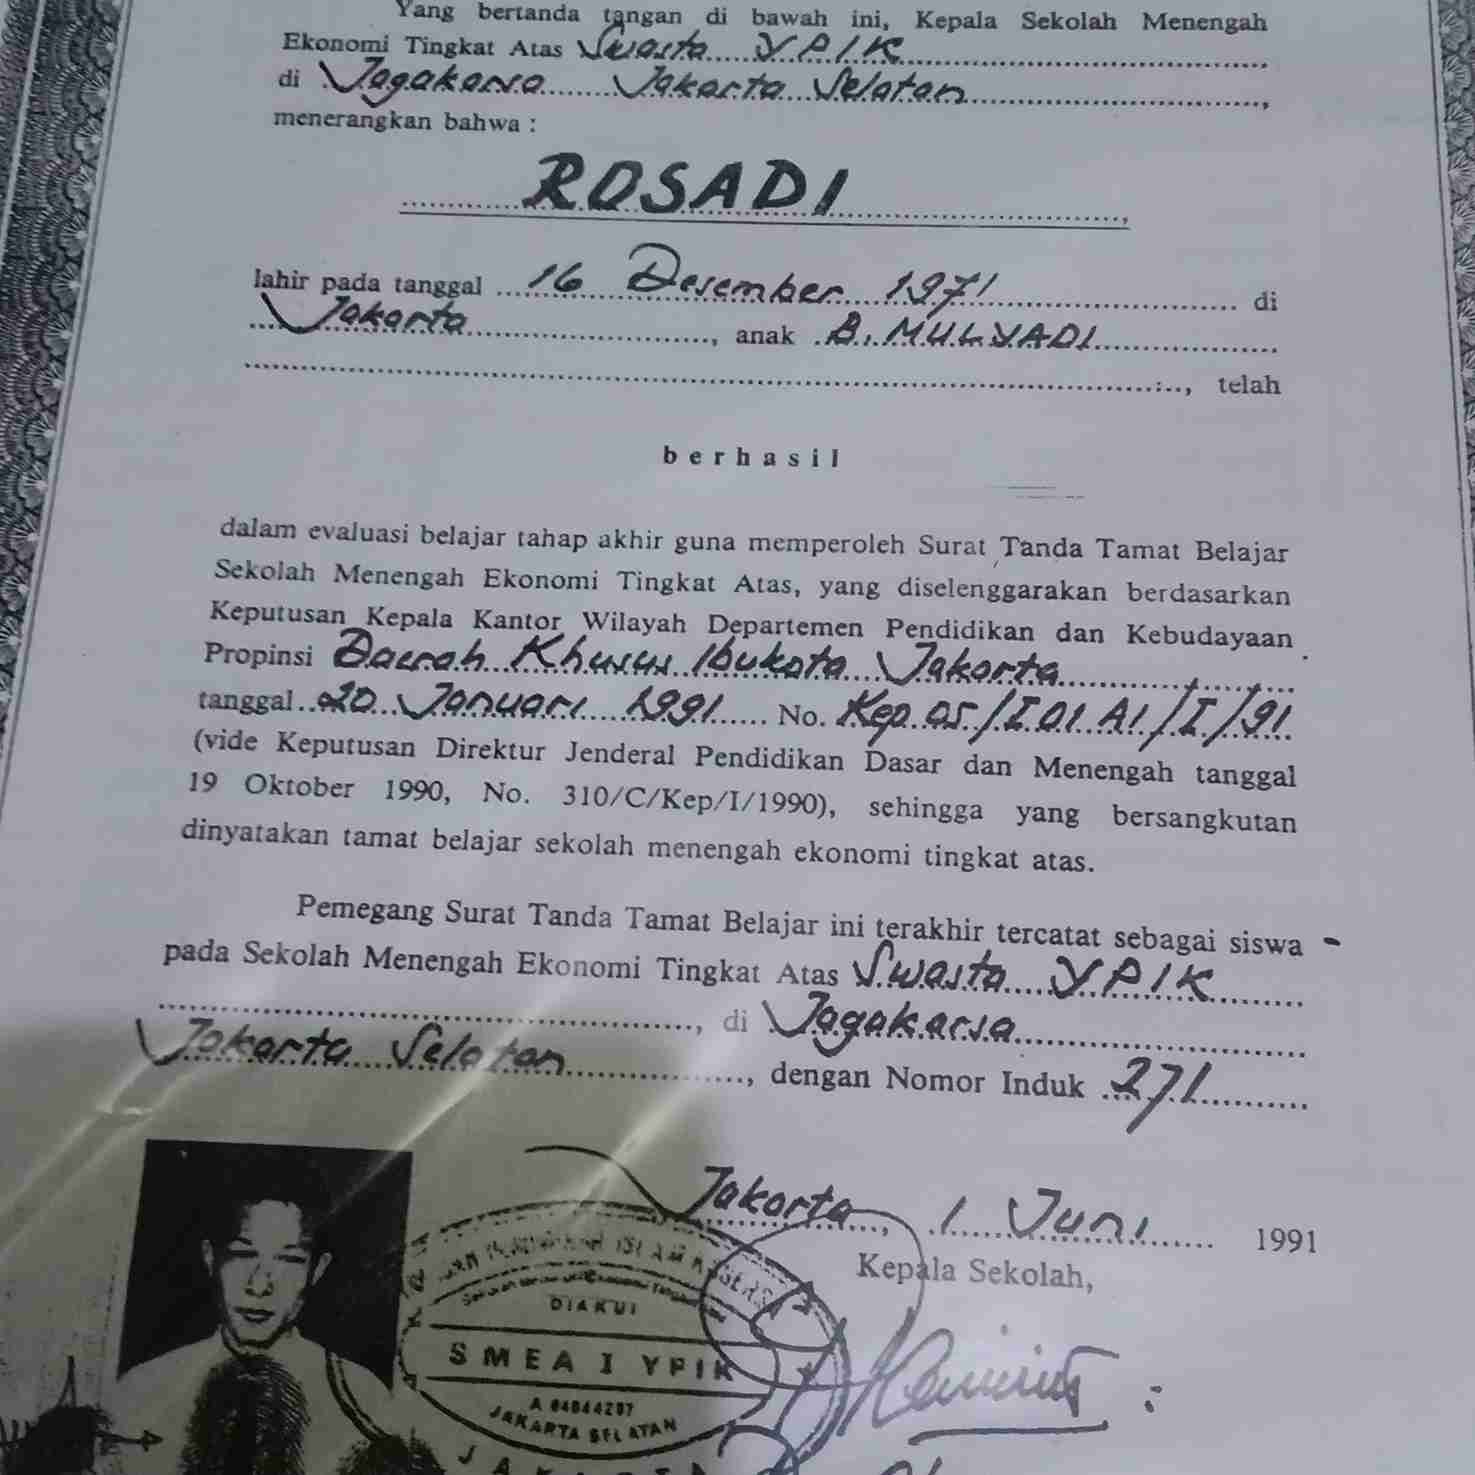 Yang bertanda tangan di bawah ini, Kepala Sekolah Menengah
Ekonomi Tingkat Atas Swasta YPIK
di Jagakarsa Jakarta Selatan,
menerangkan bahwa :
ROSADI,
lahir pada tanggal 16 Desember 1971 di
Jakarta, anak B. MULYADI
, telah
berhasil
dalam evaluasi belajar tahap akhir guna memperoleh Surat Tanda Tamat Belajar
Sekolah Menengah Ekonomi Tingkat Atas, yang diselenggarakan berdasarkan
Keputusan Kepala Kantor Wilayah Departemen Pendidikan dan Kebudayaan
Propinsi Daerah Khusus Ibukota Jakarta
tanggal 20 Januari 1991 No. Kep 05/I.01 A1/I/91
(vide Keputusan Direktur Jenderal Pendidikan Dasar dan Menengah tanggal
19 Oktober 1990, No. 310/C/Kep/I/1990), sehingga yang bersangkutan
dinyatakan tamat belajar sekolah menengah ekonomi tingkat atas.
Pemegang Surat Tanda Tamat Belajar ini terakhir tercatat sebagai siswa -
pada Sekolah Menengah Ekonomi Tingkat Atas Swasta YPIK
, di Jagakarsa
Jakarta Selatan, dengan Nomor Induk 271
Jakarta, 1 Juni 1991
Kepala Sekolah,
DIAKUI
SMEA I YPIK
JAKARTA SELATAN